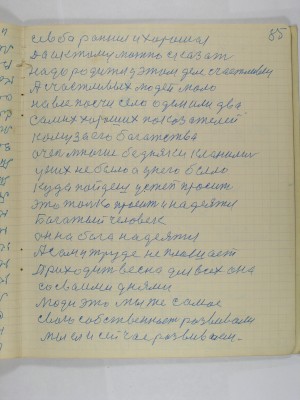 85
села ранний и хороший
Да и к тому можно сказать
надо родится в этом деле счастливым
А счастливых людей мало
на все почти село один или два
самих хороших показателей
кому за его богатства
очен многие бедняки кланились
у них не было а у него было
куда пойдеш успет просит
это только просит и надеятся
Богатый человек
он на бога надеятся
А сам труде не плошает
Приходит весна для всех она
со своими днями
Люди это мы те самое
свою собственност розвивали
мы ей и сейчас розвиваем.